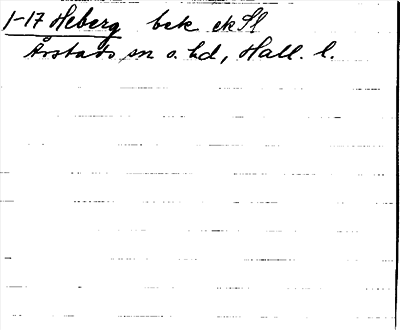 1-17 Heberg bek ek Sl
Årstads sn o. hd, Hall. l.